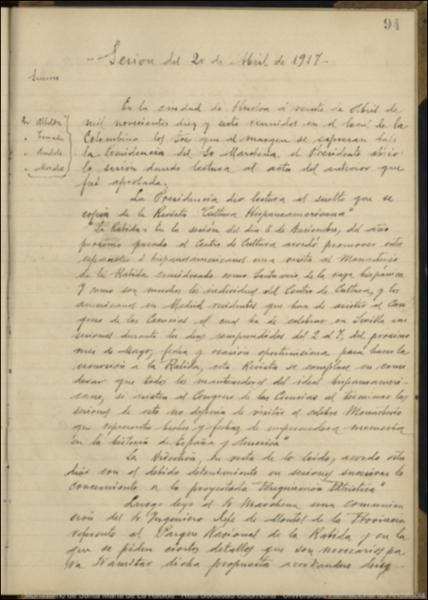 94
Sesion del 20 de Abril de 1917
Señores
En la ciudad de Huelva á veinte de Abril de
mil novecientos diez y siete reunidos en el local de la
Colombina los Sres que al margen se expresan bajo
la Presidencia del Sr Marchena, el Presidente abrió
la sesion dando lectura al acta del anterior que
fué aprobada.
La Presidencia dió lectura al suelto que se
copia de la Revista "Cultura Hispanoamericana"
"La Rabida. En la sesion del dia 6 de Diciembre, del año
proximo pasado el Centro de Cultura acordó promover entre
españoles é hispanoamericanos una visita al Monasterio
de la Rabida considerado como Santuario de la raza hispanica
Y como son muchos los individuos del Centro de Cultura, y los
americanos en Madrid residentes que han de asistir al Con
greso de las Ciencias el cual ha de celebrar en Sevilla sus
sesiones durante los dias comprendidos del 2 al 7, del proximo
mes de Mayo, fecha y ocasion para hacer la
excursion á la Rabida, esta Revista se complace en
que todos los mantenedores del ideal hispanoameri-
cano, si asisten al Congreso de las Ciencias al terminar las
sesiones de este no dejaran de visitar el celebre Monasterio
que representa y fechas de memoria
en la historia de España y America"
La Directiva, en vista de lo leido, acordó
con el debido detenimiento en sesiones sucesivas lo
concerniente á la proyectada "Peregrinación Patriotica"
Luego leyó el Sr Marchena una comunica
ción del Sr Ingeniero Jefe de Montes de la Provincia
referente al Parque Nacional de la Rabida y en la
que se piden ciertos detalles que son necesarios pa
ra tramitar dicha propuesta acordandose